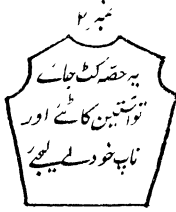 نمبر ۲
یہ حصّہ کٹ جائے
تو آستین کاٹئے اور
ناپ خود لے لیجئے